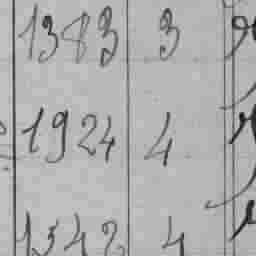 1383 3
1924 4
1342 4